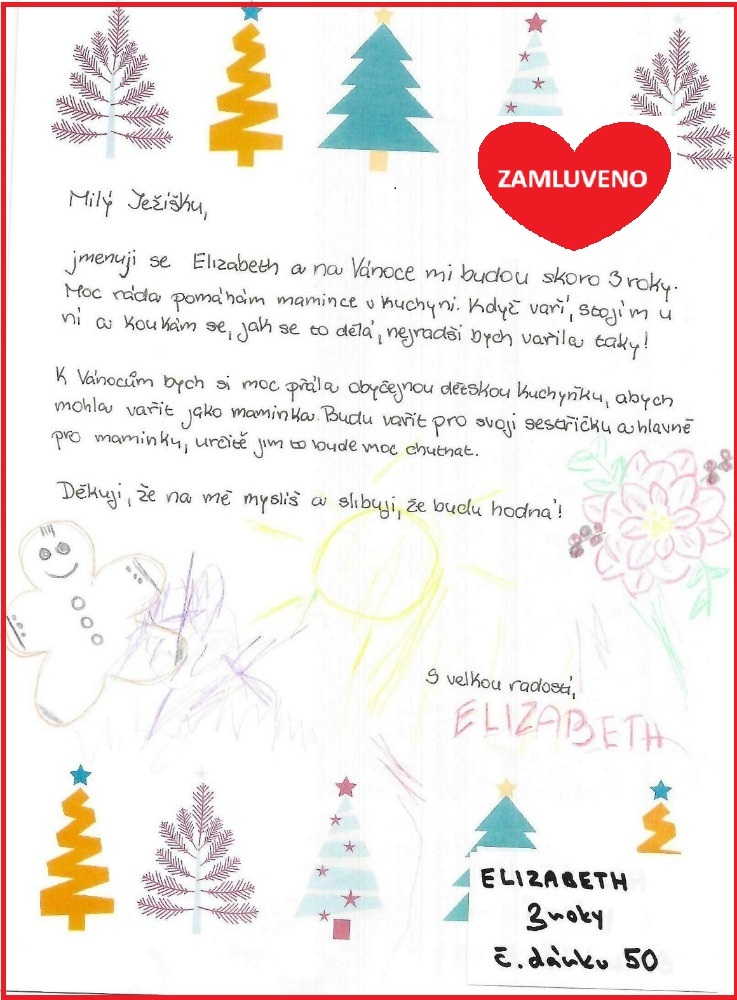 ZAMLUVENO
Milý Ježíšku,
jmenuji se Elizabeth a na Vánoce mi budou skoro 3 roky.
Moc ráda pomáhám mamince v kuchyni. Když vaří, stojím u
ní a koukám se, jak se to dělá, nejradši bych vařila taky!
K Vánocům bych si moc přála obyčejnou dětskou kuchyňku, abych
mohla vařit jako maminka. Budu vařit pro svoji sestřičku a hlavně
pro maminku, určitě jim to bude moc chutnat.
Děkuji, že na mě myslíš a slibuji, že budu hodná!
S velkou radostí,
ELIZABETH
ELIZABETH
3 roky
č. dárku 50